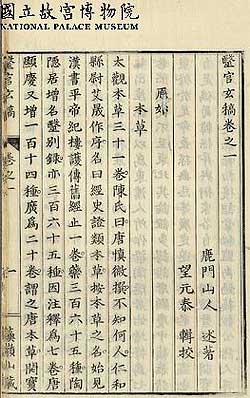 國立故宮博物院
NATIONAL PALACE MUSEUM
醫官玄稿卷之一
鹿門山人 述著
望元泰 轉挍
原始
本草
太觀本草三十一卷陳氏曰唐慎微撰不知何人仁和
縣尉艾晟作序名曰經史證類本草按本草之名始見
漢書平帝紀樓護傳舊經止一卷藥三百六十五種陶
隱居增名醫別錄亦三百六十五種因注釋爲七卷唐
顯慶又增一百一十四種廣爲二十卷謂之唐本草開寶
醫官玄稿
卷之一